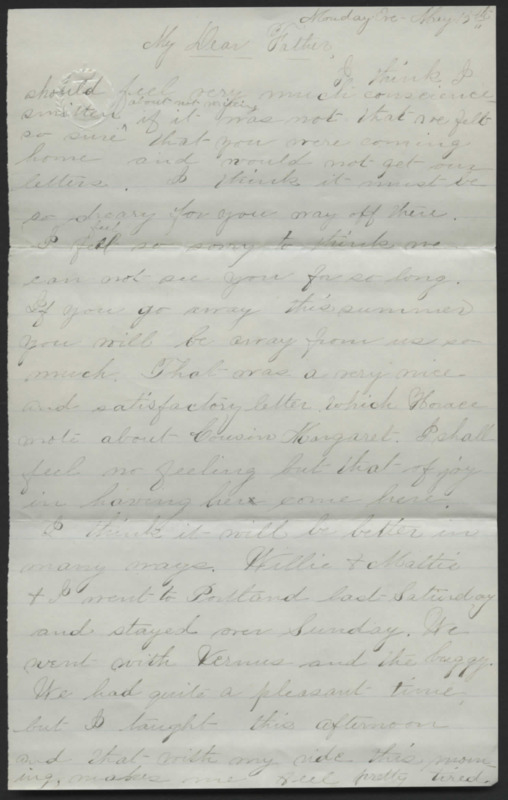 Monday Eve - May 15th
My Dear Father,
I think I
should feel very much conscience
smitten about not writing if it was not that we felt
so sure that you were coming
home and would not get our
letters. I think it must be
so dreary for you way off there.
I feel so sorry to think we
can not see you for so long.
If you go away this summer
you will be away from us so
much. That was a very nice
and satisfactory letter which Horace
wrote about Cousin Margaret. I shall
feel no feeling but that of joy
in having her come here.
I think it will be better in
many ways. Willie & Mattie
& I went to Portland last Saturday
and stayed over Sunday. We
went with Vernus and the buggy.
We had quite a pleasant time,
but I taught this afternoon
and that with my ride this morn-
ing, makes me feel pretty tired.